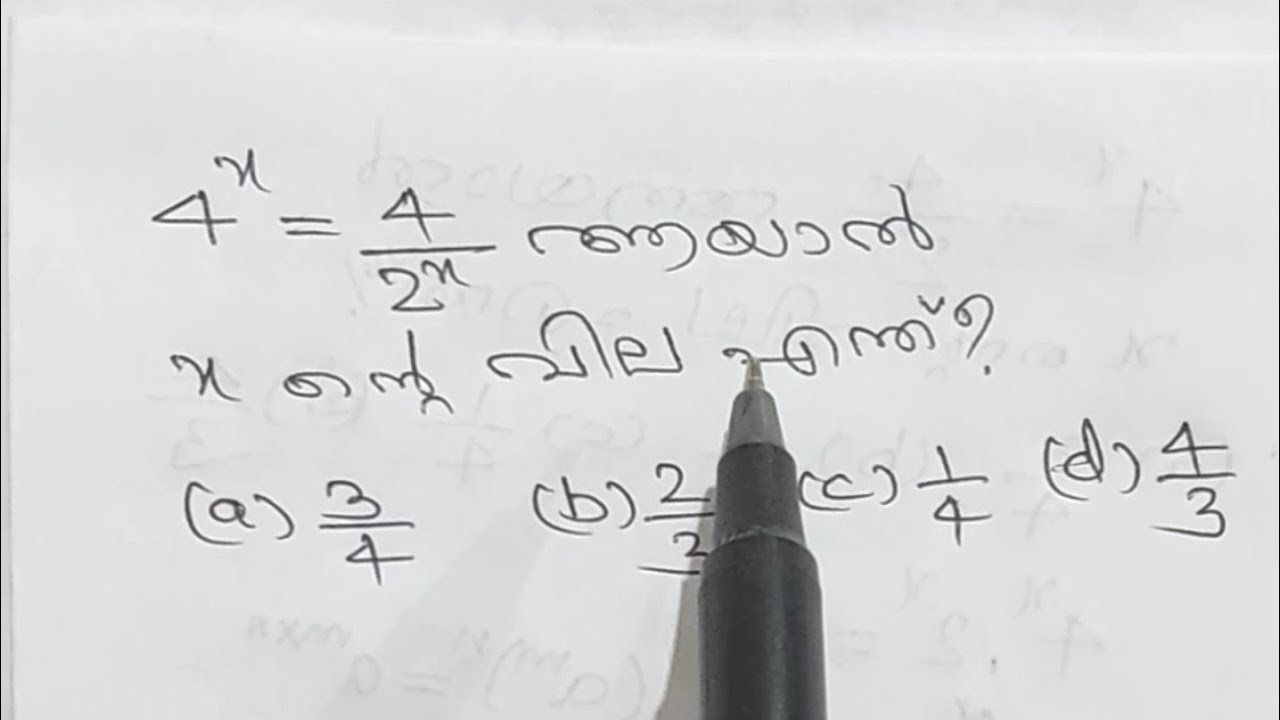 4^x = 4/2^x ആയാൽ
x ന്റെ വില എന്ത്?
(a) 3/4 (b) 2/3 (c) 1/4 (d) 4/3